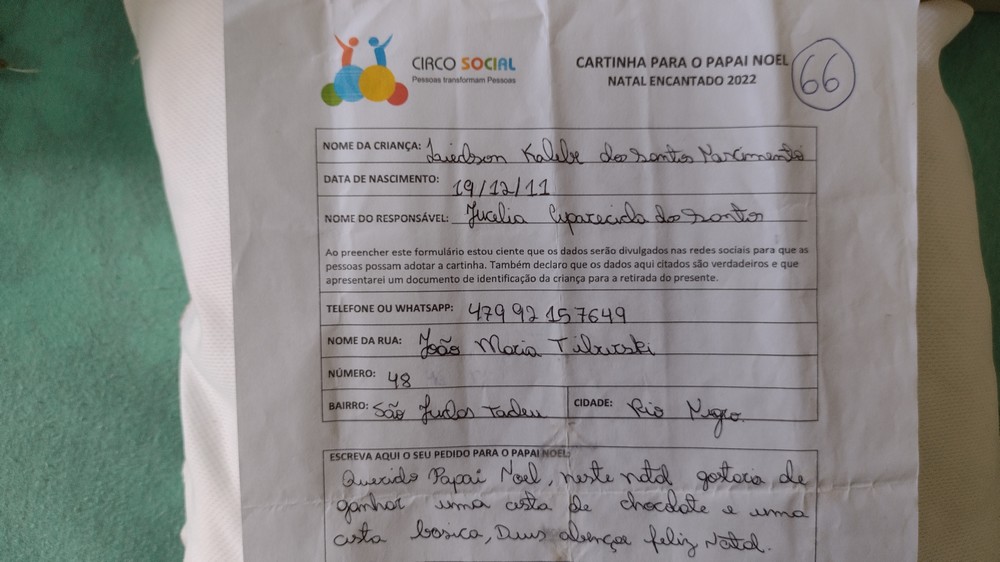 CIRCO SOCIAL
Pessoas transformam Pessoas
CARTINHA PARA O PAPAI NOEL
NATAL ENCANTADO 2022
66
NOME DA CRIANÇA: Laiedson Kalebe dos Santos Nascimento
DATA DE NASCIMENTO: 19/12/11
NOME DO RESPONSÁVEL: Jucelia Aparecida dos Santos
Ao preencher este formulário estou ciente que os dados serão divulgados nas redes sociais para que as
pessoas possam adotar a cartinha. Também declaro que os dados aqui citados são verdadeiros e que
apresentarei um documento de identificação da criança para a retirada do presente.
TELEFONE OU WHATSAPP: 479 92 157649
NOME DA RUA: João Maria
NÚMERO: 48
BAIRRO: São Judas Tadeu CIDADE: Rio Negro
ESCREVA AQUI O SEU PEDIDO PARA O PAPAI NOEL:
Querido Papai Noel, neste natal gostaria de
ganhar uma cesta de chocolate e uma
cesta basica, Deus abençoe feliz Natal.